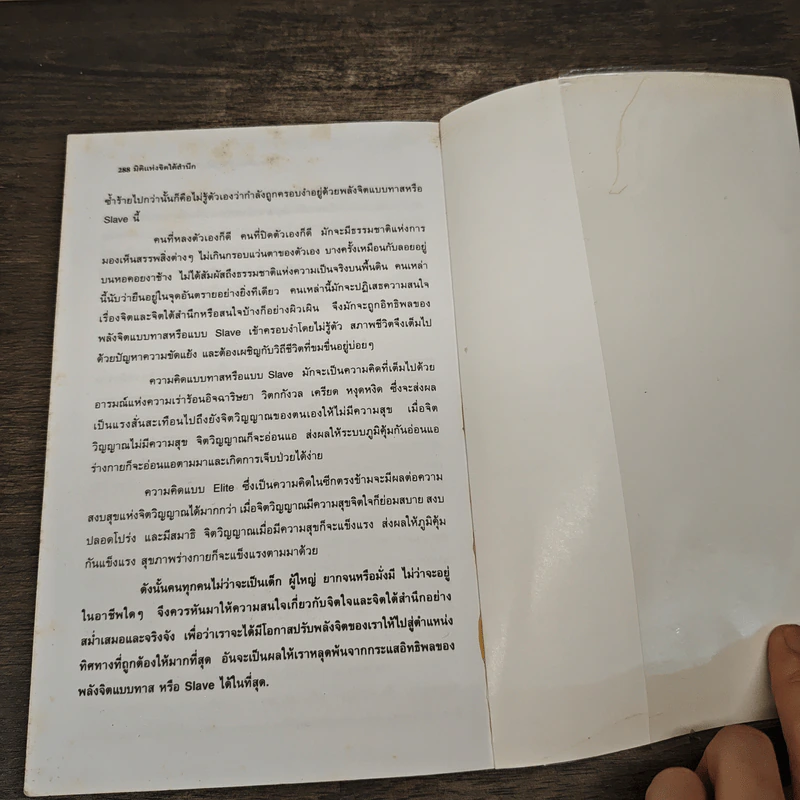 288 มิติแห่งจิตใต้สำนึก
ซ้ำร้ายไปกว่านั้นก็คือไม่รู้ตัวเองว่ากำลังถูกครอบงำอยู่ด้วยพลังจิตแบบทาสหรือ
Slave นี้
คนที่หลงตัวเองก็ดี คนที่ปิดตัวเองก็ดี มักจะมีธรรมชาติแห่งการ
มองเห็นสรรพสิ่งต่างๆ ไม่เกินกรอบแว่นตาของตัวเอง บางครั้งเหมือนกับลอยอยู่
บนหอคอยงาช้าง ไม่ได้สัมผัสถึงธรรมชาติแห่งความเป็นจริงบนพื้นดิน คนเหล่า
นี้นับว่ายืนอยู่ในจุดอันตรายอย่างยิ่งทีเดียว คนเหล่านี้มักจะปฏิเสธความสนใจ
เรื่องจิตและจิตใต้สำนึกหรือสนใจบ้างก็อย่างผิวเผิน จึงมักจะถูกอิทธิพลของ
พลังจิตแบบทาสหรือแบบ Slave เข้าครอบงำโดยไม่รู้ตัว สภาพชีวิตจึงเต็มไป
ด้วยปัญหาความขัดแย้ง และต้องเผชิญกับวิถีชีวิตที่ขมขื่นอยู่บ่อยๆ
ความคิดแบบทาสหรือแบบ Slave มักจะเป็นความคิดที่เต็มไปด้วย
อารมณ์แห่งความเร่าร้อนอิจฉาริษยา วิตกกังวล เครียด หงุดหงิด ซึ่งจะส่งผล
เป็นแรงสั่นสะเทือนไปถึงยังจิตวิญญาณของตนเองให้ไม่มีความสุข เมื่อจิต
วิญญาณไม่มีความสุข จิตวิญญาณก็จะอ่อนแอ ส่งผลให้ระบบภูมิคุ้มกันอ่อนแอ
ร่างกายก็จะอ่อนแอตามมาและเกิดการเจ็บป่วยได้ง่าย
ความคิดแบบ Elite ซึ่งเป็นความคิดในซีกตรงข้ามจะมีผลต่อความ
สงบสุขแห่งจิตวิญญาณได้มากกว่า เมื่อจิตวิญญาณมีความสุขจิตใจก็ย่อมสบาย สงบ
ปลอดโปร่ง และมีสมาธิ จิตวิญญาณเมื่อมีความสุขก็จะแข็งแรง ส่งผลให้ภูมิคุ้ม
กันแข็งแรง สุขภาพร่างกายก็จะแข็งแรงตามมาด้วย
ดังนั้นคนทุกคนไม่ว่าจะเป็นเด็ก ผู้ใหญ่ ยากจนหรือมั่งมี ไม่ว่าจะอยู่
ในอาชีพใดๆ จึงควรหันมาให้ความสนใจเกี่ยวกับจิตใจและจิตใต้สำนึกอย่าง
สม่ำเสมอและจริงจัง เพื่อว่าเราจะได้มีโอกาสปรับพลังจิตของเราให้ไปสู่ตำแหน่ง
ทิศทางที่ถูกต้องให้มากที่สุด อันจะเป็นผลให้เราหลุดพ้นจากกระแสอิทธิพลของ
พลังจิตแบบทาส หรือ Slave ได้ในที่สุด.